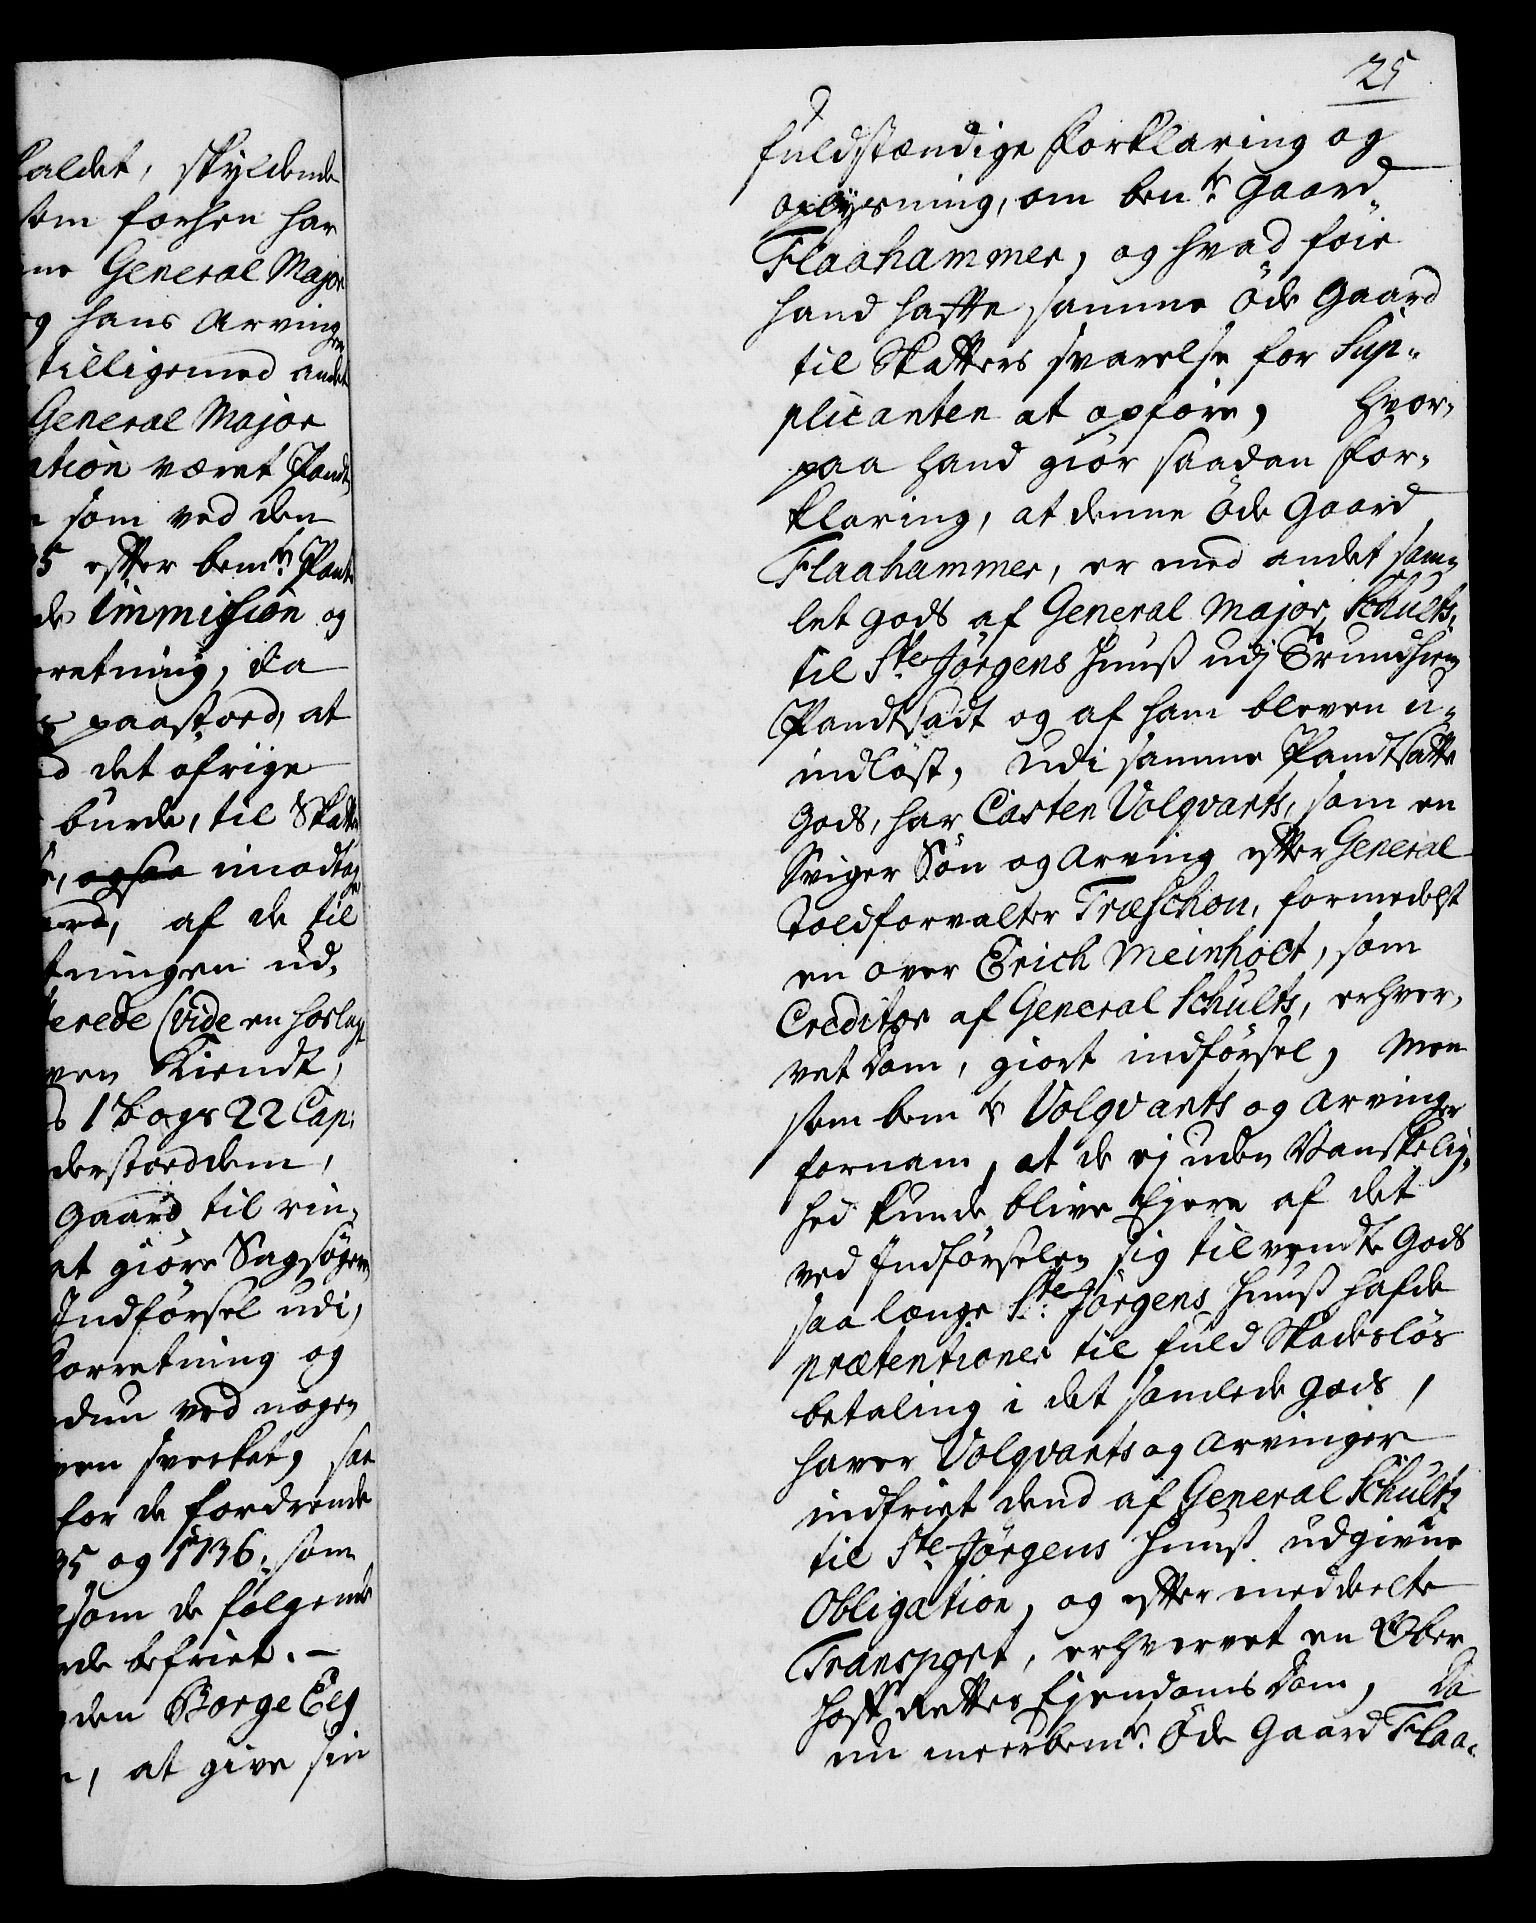 aldet, skyldende
som forhen har
General Major
og hans Arvinger
tilligemed andet
General Major
ation været Pandt
som ved den
35 efter bemte Pant
de Immission og
retning, da
paastoed, at
d det øfrige
burde, til Skatte
, ogsaa imodtage
, af de til
tningen ud-
terede (vide en hoslagt
ven Kiendt,
s 1 Bogs 22 Cap:
derstoed dem,
Gaard til rin-
at giöre Sagsögeren
Indförsel udi,
forretning og
dem ved nogen
ven svecket, saa
for de fordrende
35 og 1736, som
som de følgende
de befriet. –
den Borge Elg
, at give sin
25
fuldstændige Forklaring og
oplysning, om bente Gaard
Flaahammer, og hvad föie
hand hafte samme Öde Gaard
til Skatters svarelse for Sup-
plicanten at opföre, hvor-
paa hand giör saadan For-
klaring, at denne Öde Gaard
Flaahammer, er med andet sam-
let gods af General Major Schults,
til Ste Jörgens Huuß udj Trundhiem
Pandtsadt og af ham bleven u-
indlöst, Udi samme Pandtsatte
Gods, har Casten Volqvarts, som en
Sviger Sön og Arving efter General
Toldforvalter Træschou, formedelst
en over Erich Meinholt, som
Creditor af General Schults, erhver-
vet Dom, giort indförsel, Men
som bemte Volqvarts og Arvinger
fornam, at de ej uden Vanskelig-
hed kunde blive Ejere af det
ved Indförselen sig tilvendte Gods
saa længe Ste: Jörgens Huuß hafde
prætentioner til fuld Skadeslös
betaling i det samlede Gods,
haver Volqvarts og Arvinger
indfriet dend af General Schultz
til Ste Jörgens Huuß udgivne
Obligation, og efter meddeelte
Transport, erhvervet en Ober
Hoff Rettes Ejendoms Dom, Da
nu meerbemte: Öde Gaard Flaa-